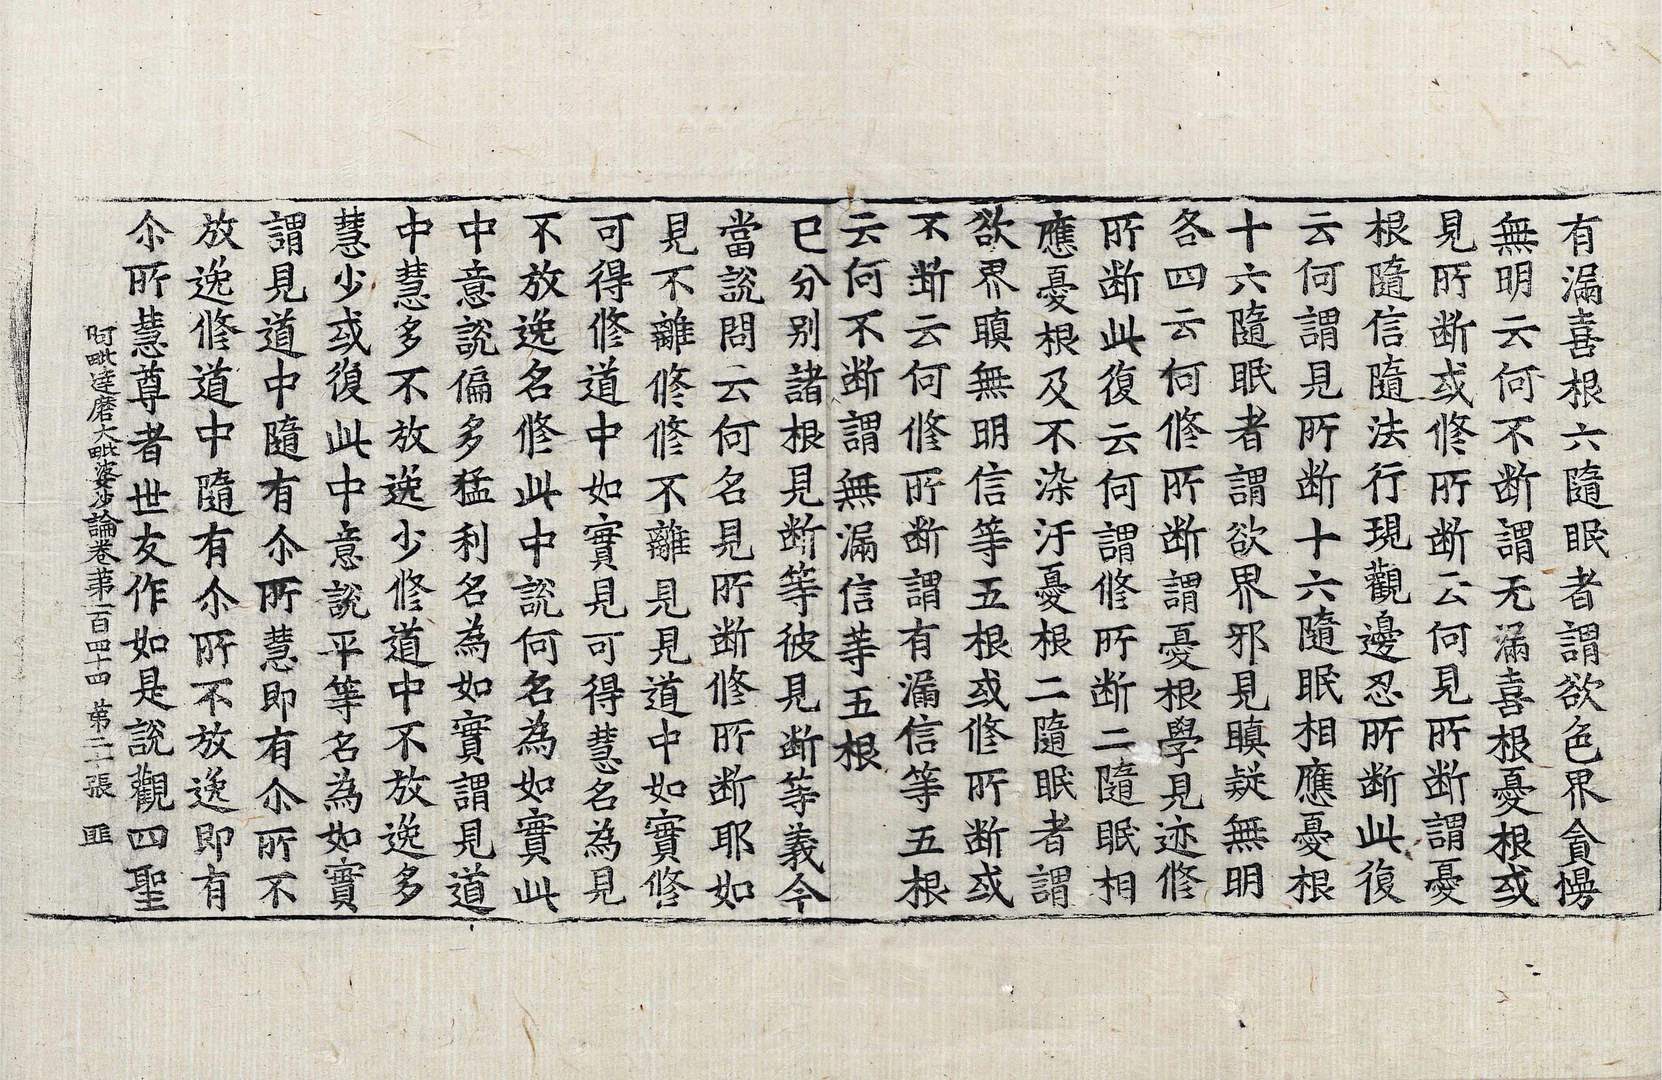 有漏喜根六隨眠者謂欲色界貪慢
無明云何不断謂无漏喜根憂根或
見所断或修所断云何見所断謂憂
根隨信隨法行現觀邊忍所断此復
云何謂見所断十六隨眠相應憂根
十六隨眠者謂欲界邪見瞋疑無明
各四云何修所断謂憂根學見迹修
所断此復云何謂修所断二隨眠相
應憂根及不染汙憂根二隨眠者謂
欲界瞋無明信等五根或修所断或
不断云何修所断謂有漏信等五根
云何不断謂無漏信等五根
已分别諸根見断等彼見断等義今
當說問云何名見所断修所断耶如
見不離修修不離見見道中如實修
可得修道中如實見可得慧名為見
不放逸名修此中說何名為如實此
中意說偏多猛利名為如實謂見道
中慧多不放逸少修道中不放逸多
慧少或復此中意說平等名為如實
謂見道中隨有尒所慧即有尒所不
放逸修道中隨有尒所不放逸即有
尒所慧尊者世友作如是說觀四聖
阿毗達磨大毗婆沙論卷苐一百四十四 苐二十張 匪